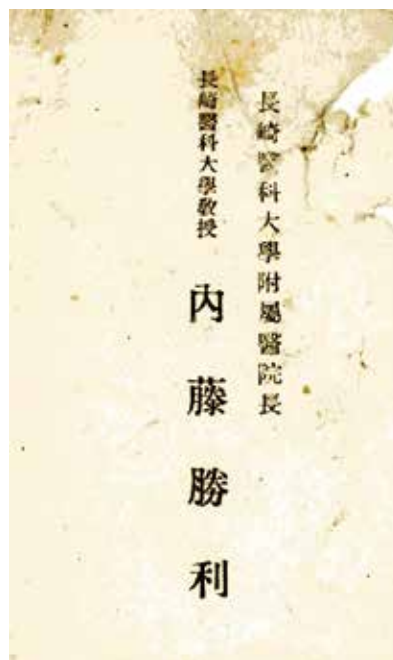 長崎醫科大學附屬醫院長
長崎醫科大學教授
内藤勝利